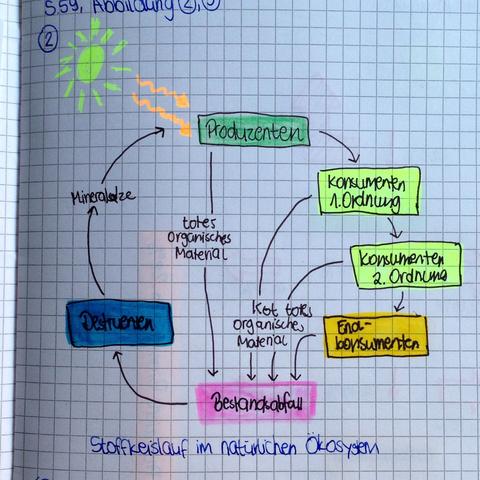 S.59, Abbildung (2,
2
Produzenten
Konsumenten
1. Ordnung
Mineralsalze
totes
organisches
Material
Konsumenten
2. Ordnung
Destruenten
Kot totes
organisches
Material
End-
konsumenten
Bestandsabfall
Stoffkeislauf im natürlichen Ökosystem